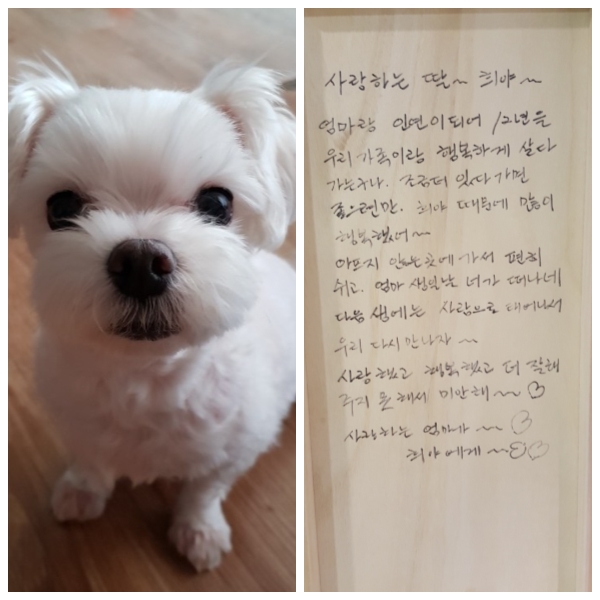 사랑하는 딸~ 희야~
엄마랑 인연이 되어 12년을
우리 가족이랑 행복하게 살다
가는구나. 조금더 있다 가면
좋으련만. 희야 때문에 많이
행복했어~
아프지 않는 곳에 가서 편히
쉬고. 엄마 생일날 너가 떠나네
다음 생에는 사람으로 태어나서
우리 다시 만나자~
사랑했고 행복했고 더 잘해
주지 못해서 미안해~~♡
사랑하는 엄마가~~♡
희야에게~♡♡